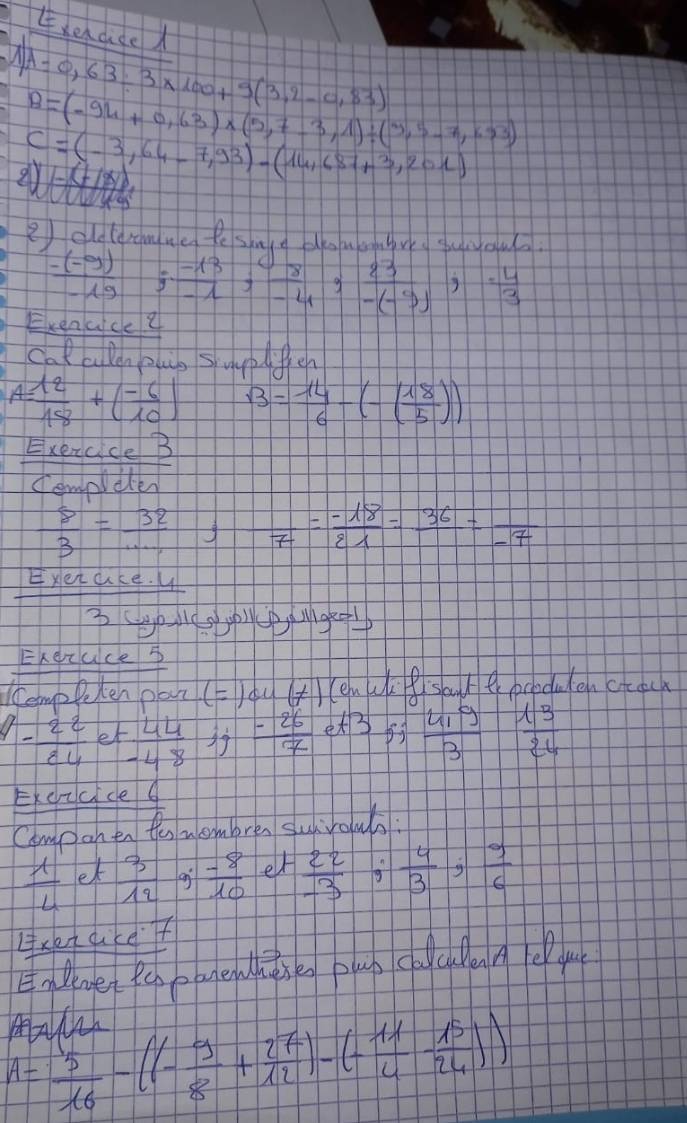 Exercice 1
1) A = 0,63 : 3 x 100 + 9(3,2 - 0,83)
B = (-94 + 0,63) x (5,7 - 3,1) ÷ (9,5 - 7,693)
C = (-3,64 - 7,93) - (14,687 + 3,201)
2)
2) determiner le singe des nombres suivants:
-(-9)/-19 ; -13/-1 ; 8/-4 ; 23/-(-9) ; -4/3
Exercice 2
Calculer puis Simplifier
A = 12/18 + (-6/10) B = 14/6 - (-(18/5))
Exercice 3
Completer
8/3 = 32/..... ; /7 = -18/21 = 36/ = /-7
Exercice 4
3
Exercice 5
Completer par (=) ou (≠) (en utilisant le produit en croix
-22/24 et 44/-48 ;; -26/7 et 3 ;; 4,9/3 13/24
Exercice 6
Comparer les nombres suivants:
1/4 et 3/12 ; -8/10 et 22/-3 ; 4/3 ; 9/6
Exercice 7
Enlever les parenthèses puis calculer A tel que:
A = 5/16 - ((-9/8 + 27/12) - (-11/4 - 15/24))